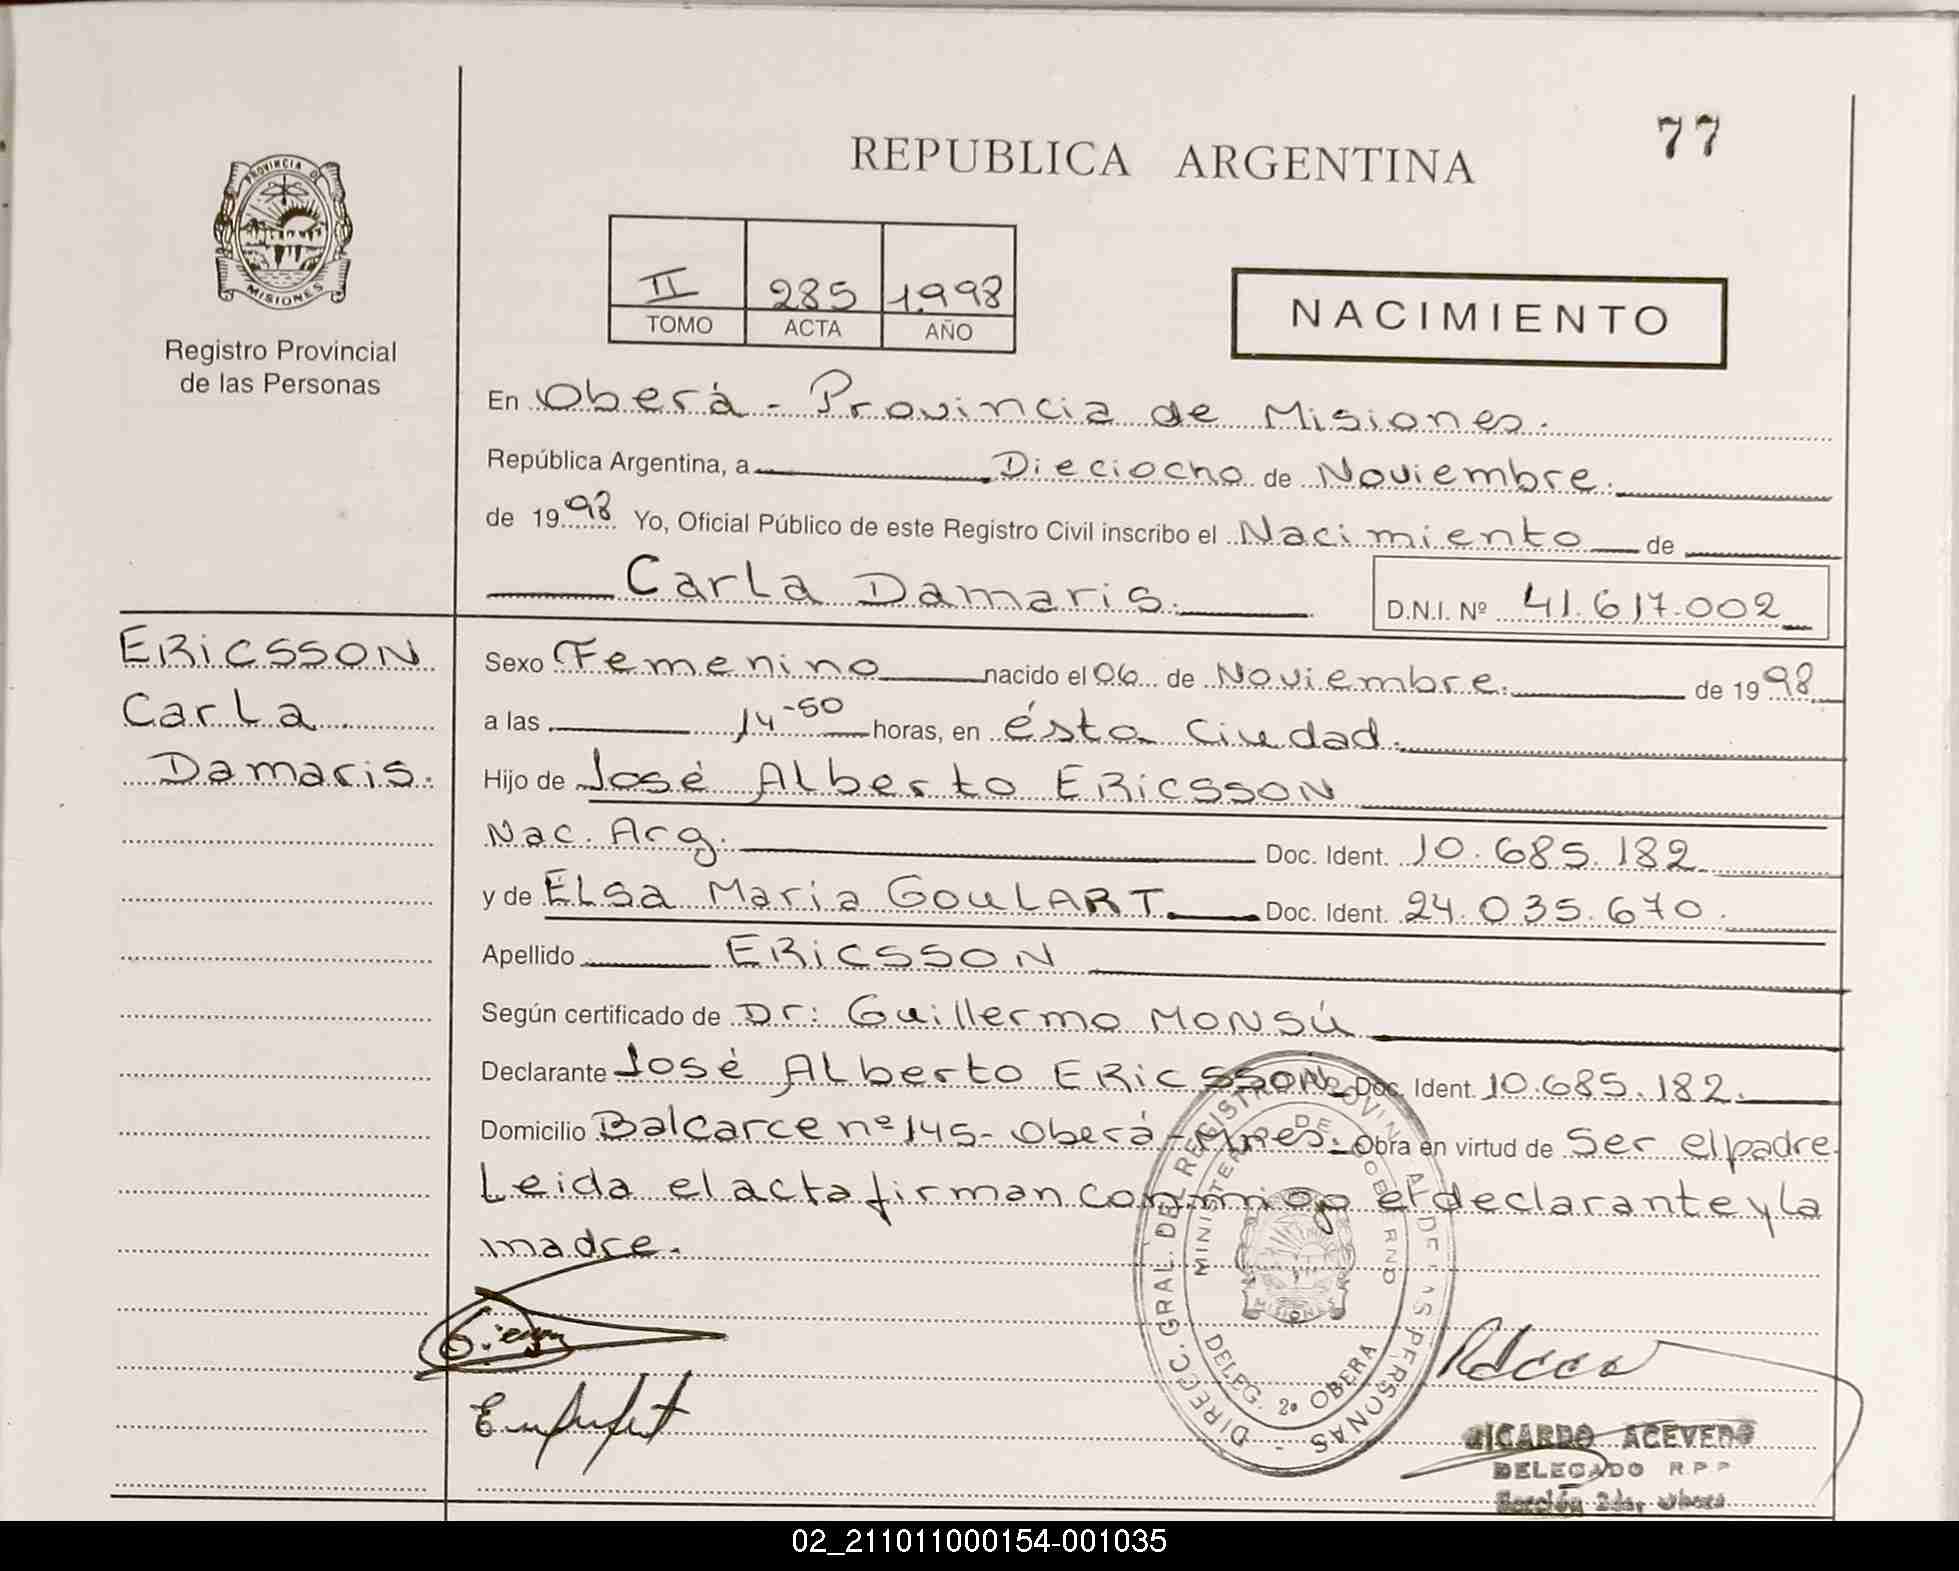 77
REPUBLICA ARGENTINA
PROVINCIA D
MISIONES
Registro Provincial
de las Personas
II 285 1.998
TOMO ACTA AÑO
NACIMIENTO
En Oberá - Provincia de Misiones.
República Argentina, a Dieciocho de Noviembre.
de 1998 Yo, Oficial Público de este Registro Civil inscribo el Nacimiento de
Carla Damaris.
D.N.I. Nº 41.617.002
ERICSSON
Carla
Damaris.
Sexo Femenino nacido el 06 de Noviembre. de 1998
a las 14-50 horas, en ésta Ciudad.
Hijo de José Alberto ERICSSON
Nac. Arg. Doc. Ident. 10.685.182
y de Elsa Maria GOULART. Doc. Ident. 24.035.670.
Apellido ERICSSON
Según certificado de Dr: Guillermo MONSÚ
Declarante José Alberto ERICSSON Doc. Ident. 10.685.182.
Domicilio Balcarce nº 145- Oberá-Mnes. Obra en virtud de Ser el padre
Leida el acta firman conmigo el declarante y la
madre.
DIREC. GRAL. DEL REGISTRO PROVIN DE AS PERSONAS
MINISTER DE GOBIERNO
MISIONES
DELEG. 2ª OBERA
RICARDO ACEVEDO
DELEGADO R.P.P
Sección 2da, Oberá
02_211011000154-001035